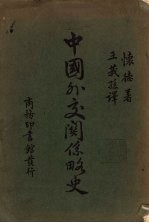 懷德著
王羲孫譯
中國外交關係略史
商務印書館發行